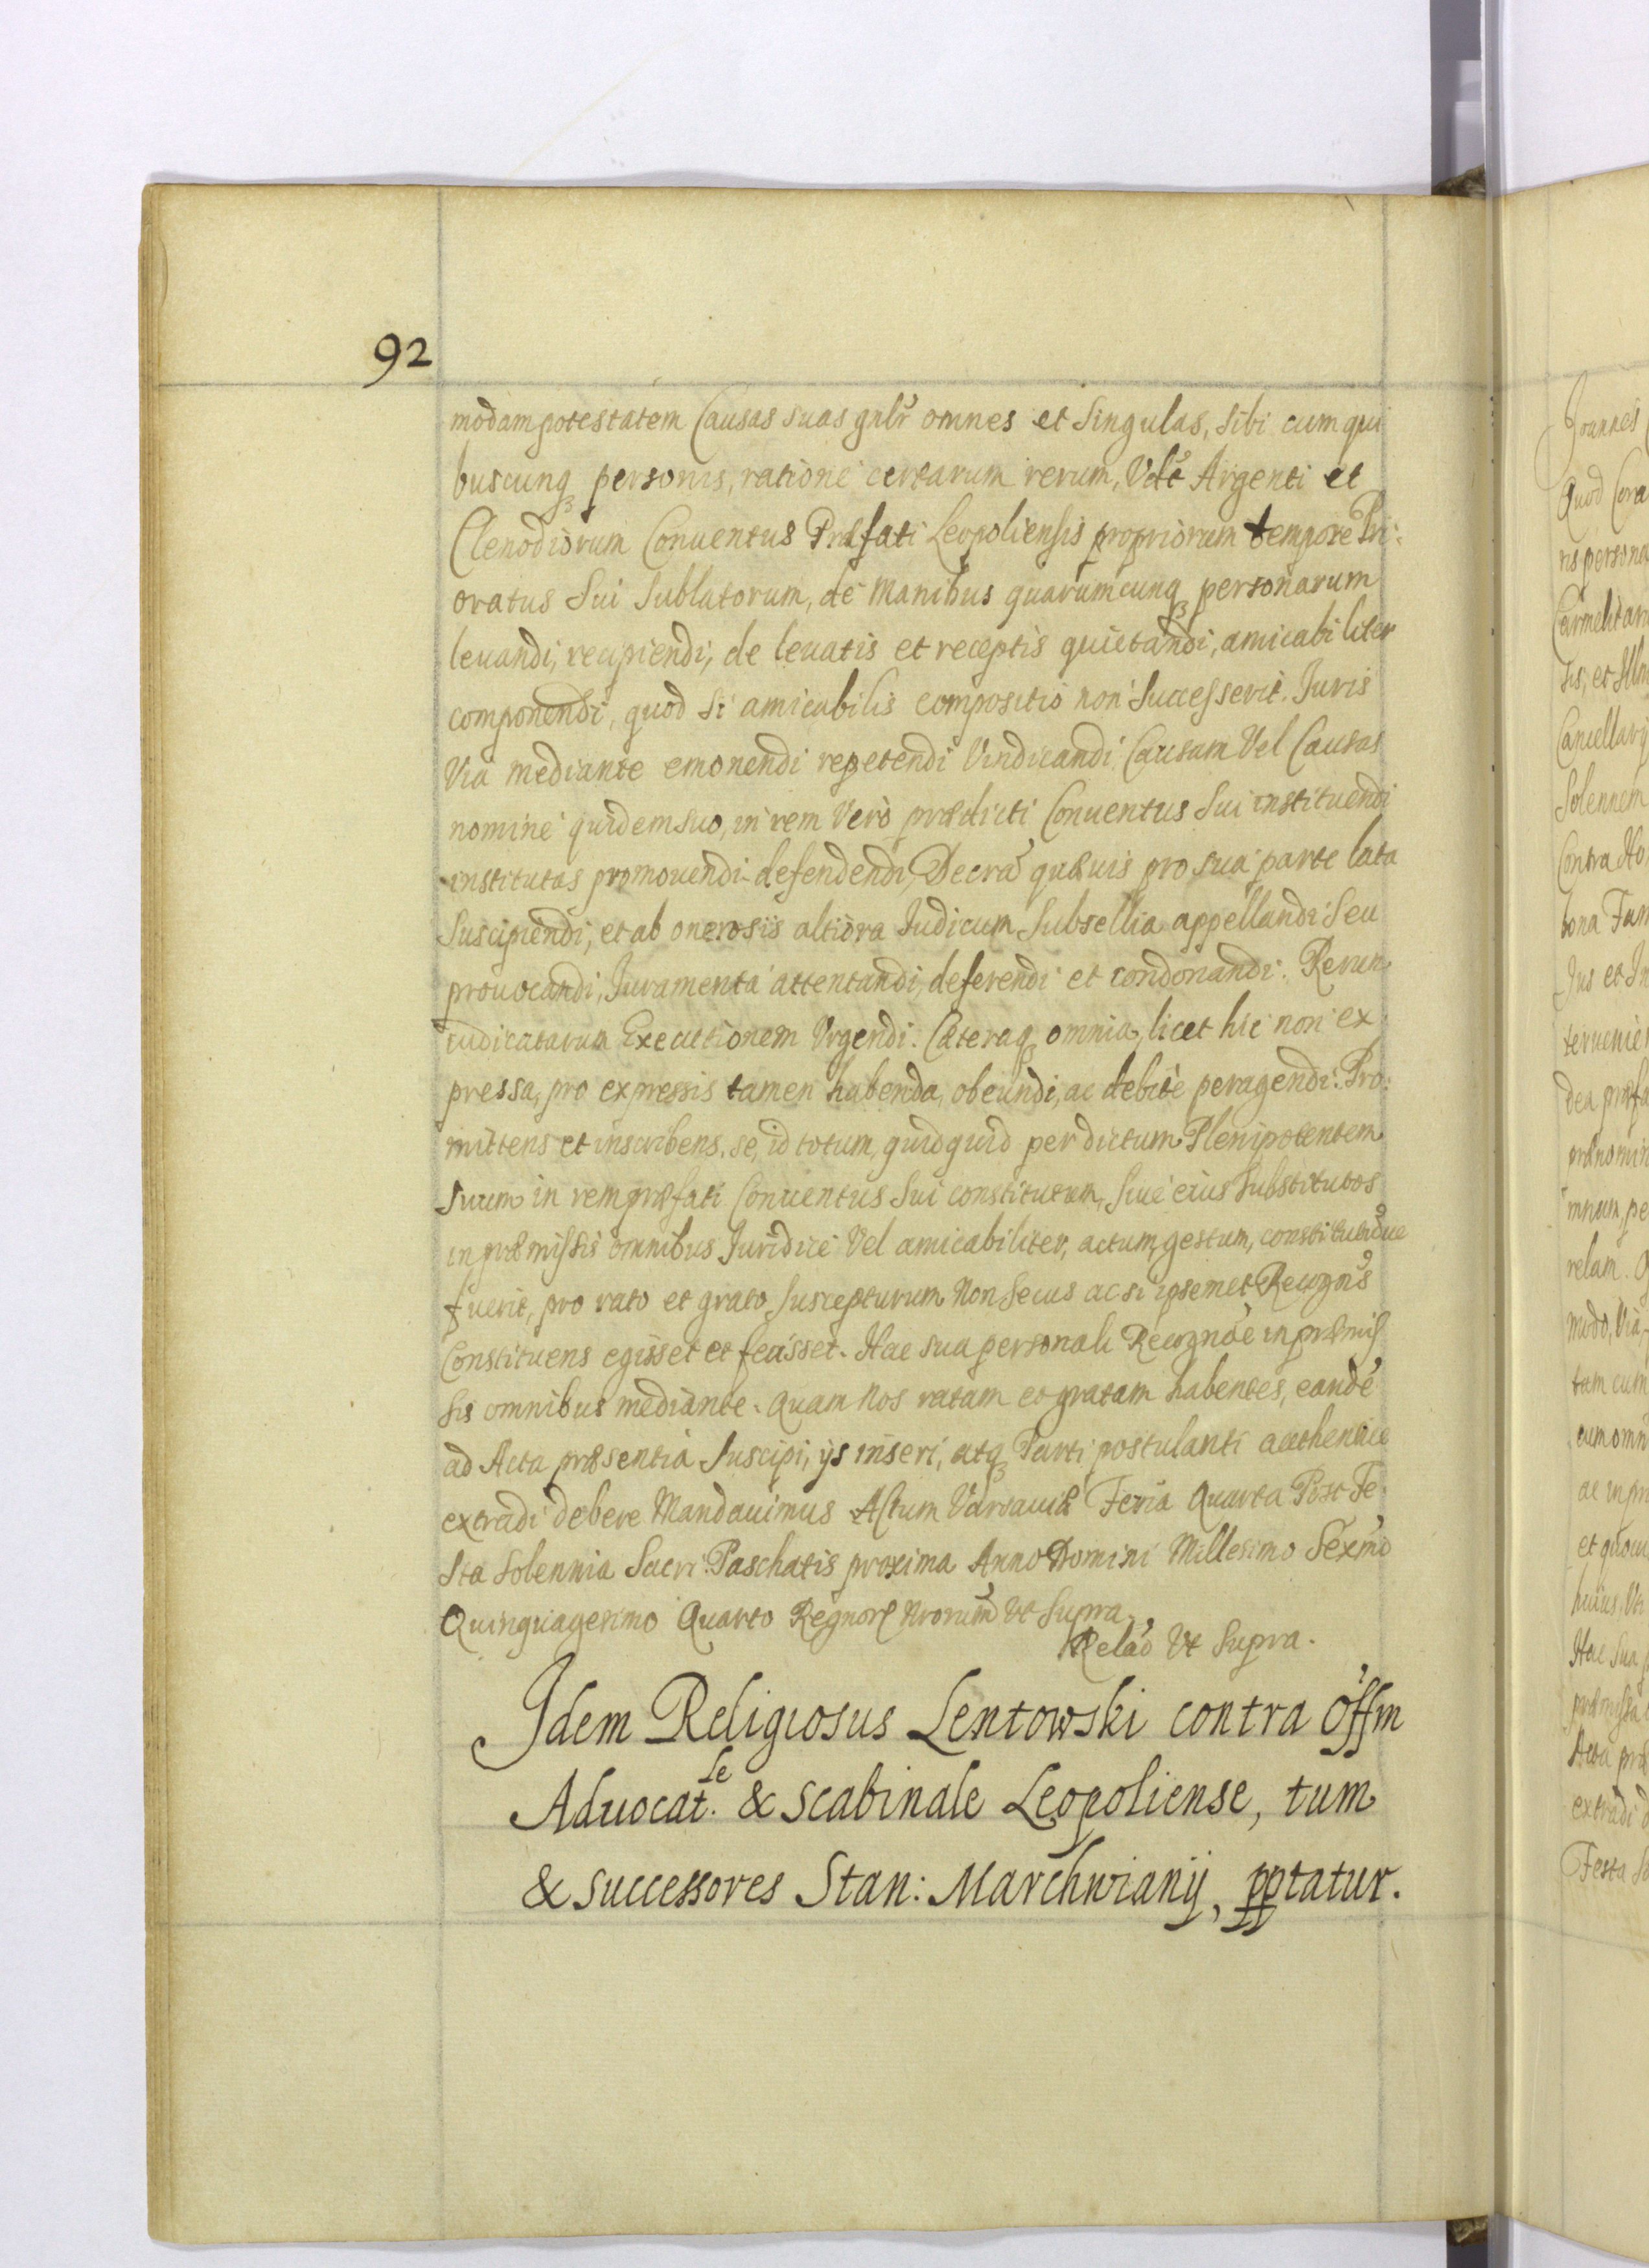 92
modam potestatem Causas suas gnlr̃ omnes et Singulas, sibi cum qui
buscunqꝫ personis, ratione certarum rerum, Vdt̃ Argenti et
Clenodiorum Conuentus Præfati Leopoliensis propriorum tempore Pri:
oratus Sui Sublatorum, de manibus quarumcunqꝫ personarum
leuandi, recipiendi, de leuatis et receptis quietandi, amicabiliter
componendi, quod si amicabilis compositio non Successerit. Juris
Via mediante emonendi repetendi Vindicandi Causam Vel Causas
nomine quidem suo, in rem Vero prædicti Conuentus Sui instituendi
institutas promouendi defendendi, Decra᷈ quæuis pro sua parte lata
Suscipiendi, et ab onerosis altiora Iudicum Subsellia appellandi Seu
prouocandi, Juramenta attentandi, deferendi et condonandi. Rerum
iudicatarum Executionem Vrgendi. Cæteraqꝫ omnia, licet hic non ex
pressa, pro expressis tamen habenda, obeundi, ac debite peragendi. Pro:
mittens et inscribens, se, id totum, quidquid per dictum Plenipotentem
Suum in rem præfati Conuentus Sui constitutum, Siue eius Substitutos
in præmissis omnibus Juridice Vel amicabiliter, actum, gestum, constitutũue
fuerit, pro rato et grato Suscepturum Non Secus ac si ipsemet Recogñs
Constituens egisset et fecisset. Hac sua personali Recognõe in præmis
sis omnibus mediante. Quam Nos ratam et gratam habentes, eandẽ
ad Acta præsentia Suscipi, ijs inseri, atqꝫ Parti postulanti authentice
extradi debere Mandauimus Actum Varsauiæ Feria Quarta Post Fe
sta Solennia Sacri Paschatis proxima Anno Domini Millesimo Sexm̃o
Quinquagesimo Quarto Regnorũ Nrorum̃ Vt Supra.
Relão Vt Supra.
Idem Religiosus Lentowski contra Offm̃
Aduocat.le & Scabinale Leopoliense, tum
& Successores Stan: Marchwianij, pptatur.